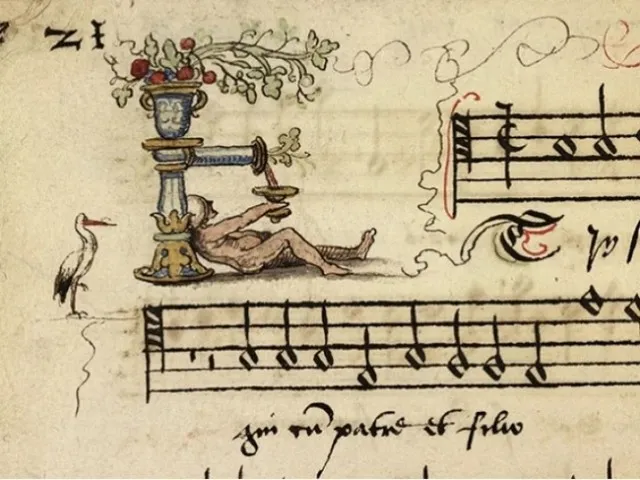 21
qui cũ patre et filio